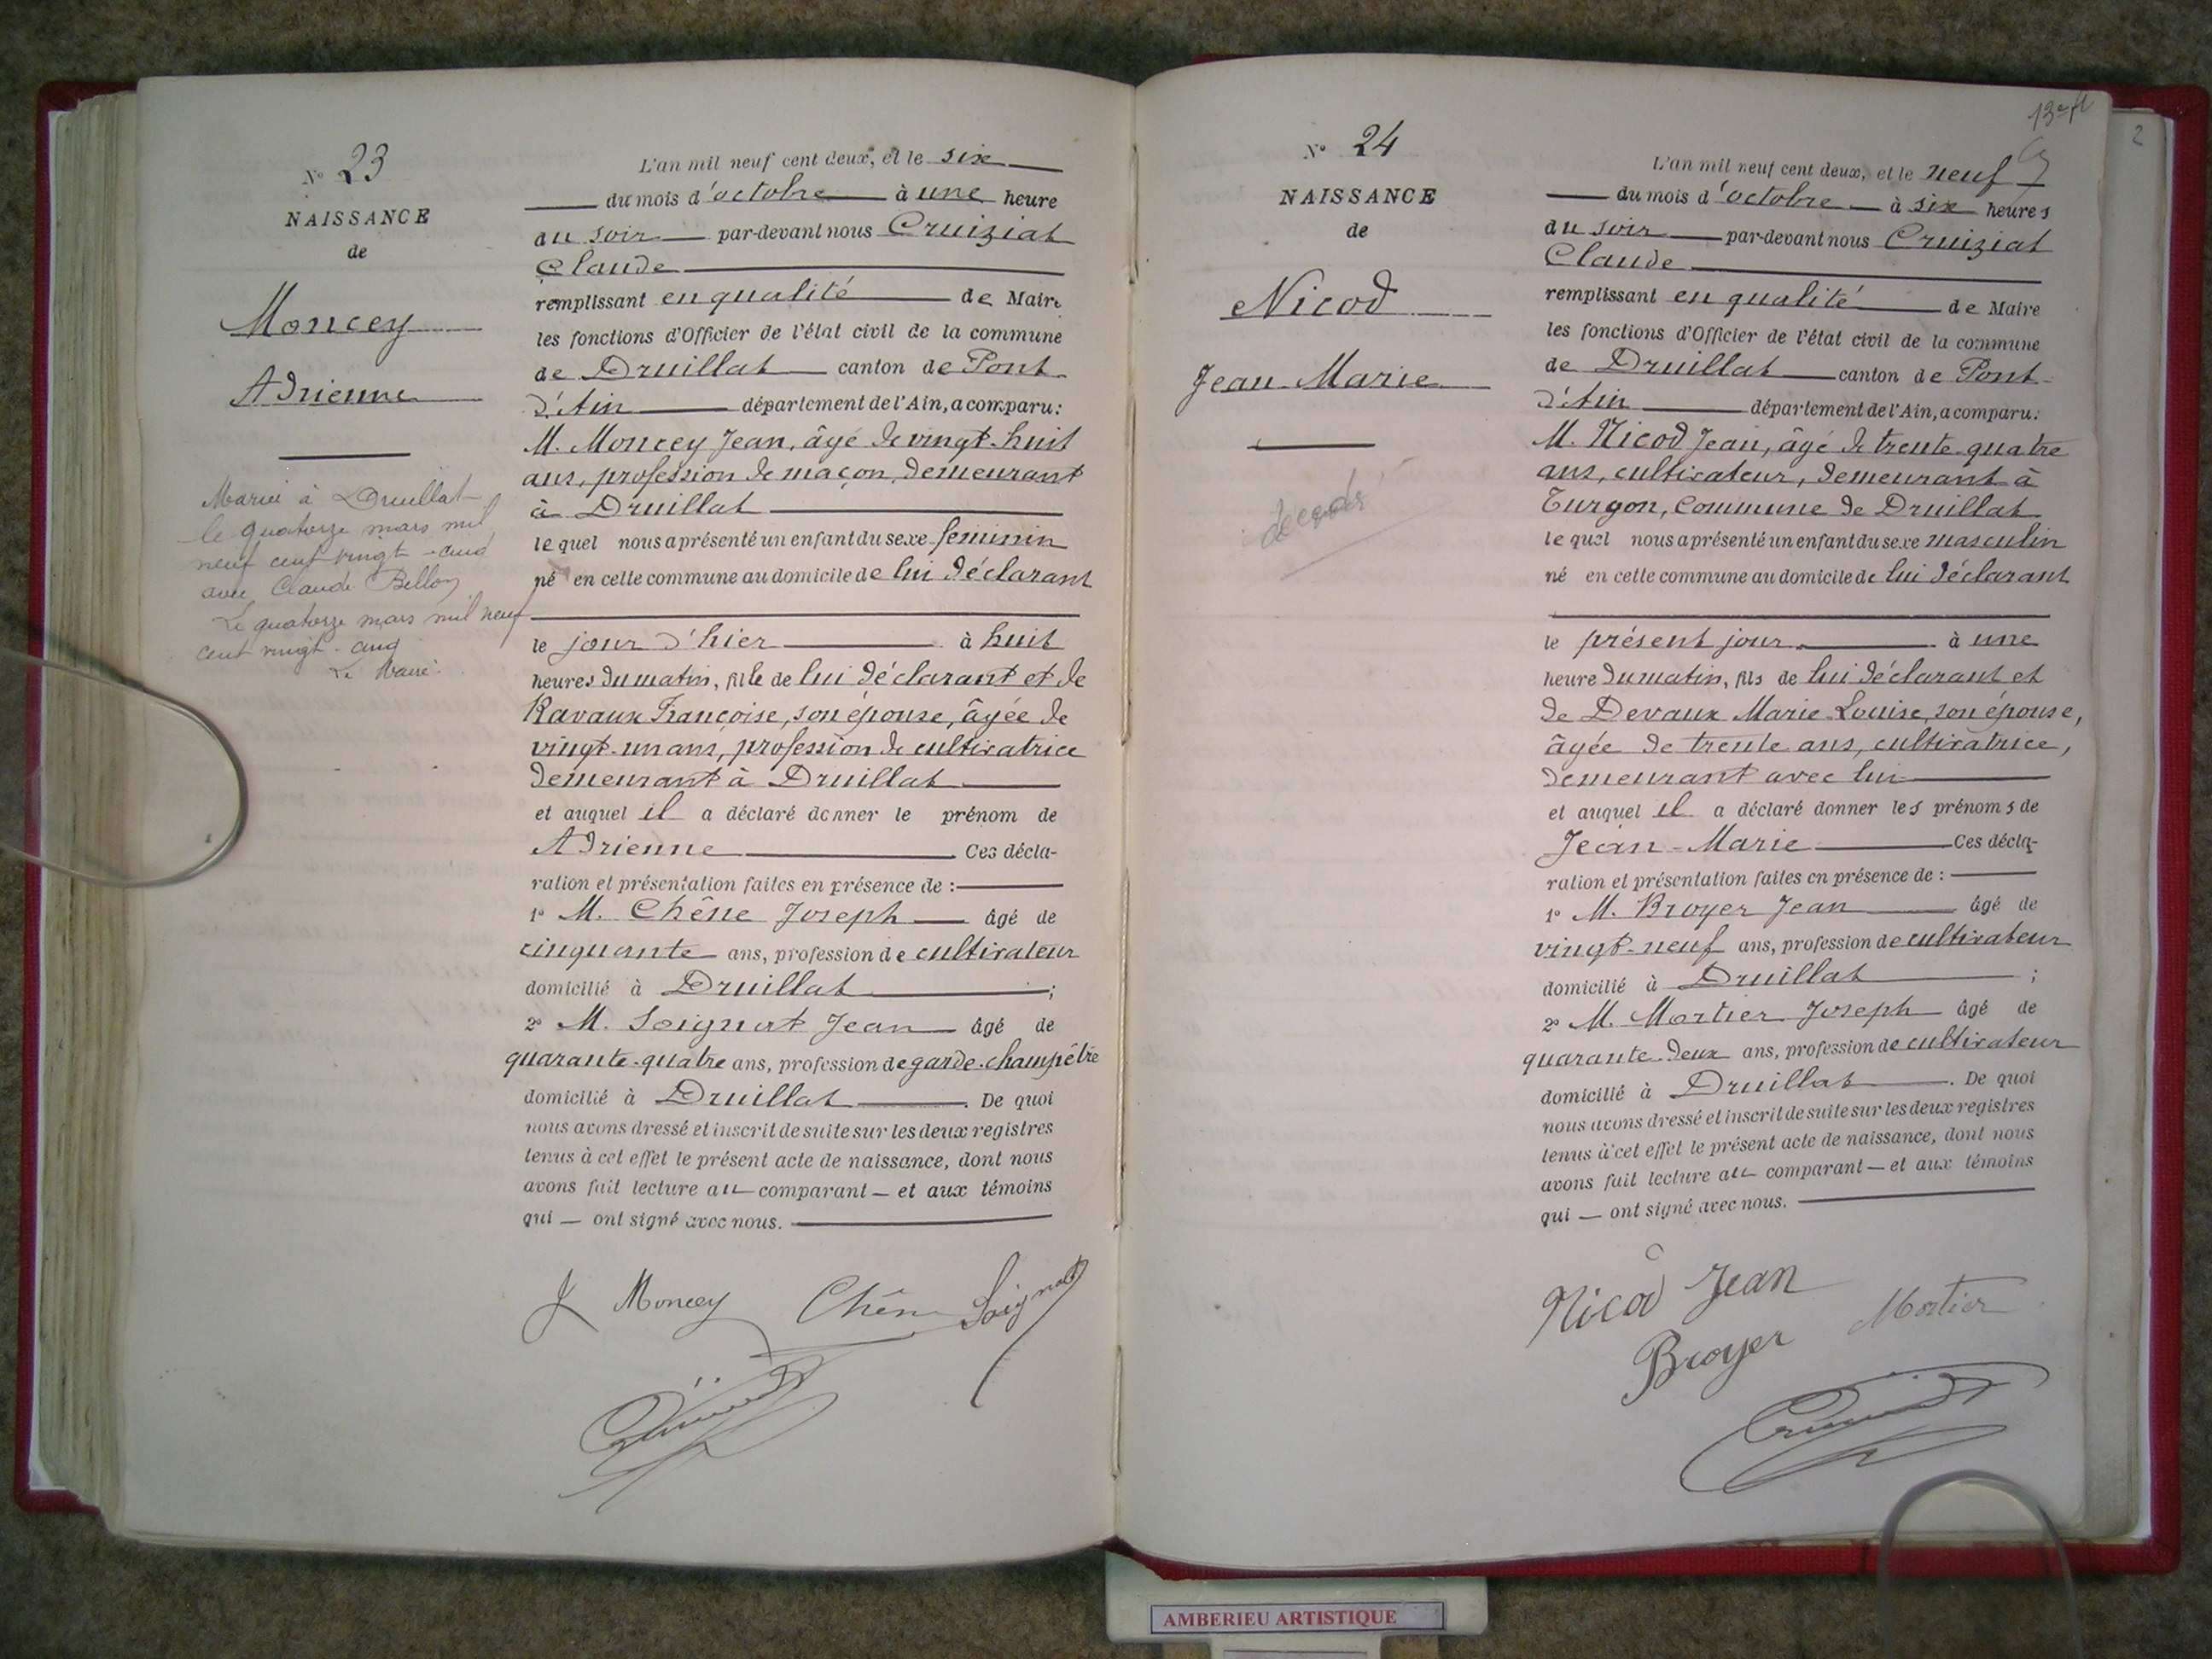 N° 23
NAISSANCE
de
Moncey
Adrienne
Marié à Druillat
le quatorze mars mil
neuf cent vingt-cinq
avec Claude
Le quatorze mars mil neuf
cent vingt-cinq
Le Maire
L'an mil neuf cent deux, et le six
du mois d'octobre à une heure
du soir par-devant nous Cruiziat
Claude
remplissant en qualité de Maire
les fonctions d'Officier de l'état civil de la commune
de Druillat canton de Pont
d'Ain département de l'Ain, a comparu:
M. Moncey Jean, âgé de vingt-huit
ans, profession de maçon, demeurant
à Druillat
lequel nous a présenté un enfant du sexe féminin
né en cette commune au domicile de lui déclarant
le jour d'hier à huit
heures du matin, fille de lui déclarant et de
Ravaux Françoise, son épouse, âgée de
vingt-un ans, profession de cultivatrice
demeurant à Druillat
et auquel il a déclaré donner le prénom de
Adrienne Ces décla-
ration et présentation faites en présence de :
1° M. Chêne Joseph âgé de
cinquante ans, profession de cultivateur
domicilié à Druillat ;
2° M. Soignat Jean âgé de
quarante-quatre ans, profession de garde-champêtre
domicilié à Druillat . De quoi
nous avons dressé et inscrit de suite sur les deux registres
tenus à cet effet le présent acte de naissance, dont nous
avons fait lecture au comparant — et aux témoins
qui — ont signé avec nous.
J Moncey Chêne Soignat
13
2
N° 24
NAISSANCE
de
Nicod
Jean-Marie
décédé
L'an mil neuf cent deux, et le neuf
du mois d'octobre à six heures
du soir par-devant nous Cruiziat
Claude
remplissant en qualité de Maire
les fonctions d'Officier de l'état civil de la commune
de Druillat canton de Pont-
d'Ain département de l'Ain, a comparu:
M. Nicod Jean, âgé de trente-quatre
ans, cultivateur, demeurant à
Turgon, commune de Druillat
lequel nous a présenté un enfant du sexe masculin
né en cette commune au domicile de lui déclarant
le présent jour à une
heure du matin, fils de lui déclarant et
de Devaux Marie-Louise, son épouse,
âgée de trente ans, cultivatrice,
demeurant avec lui
et auquel il a déclaré donner les prénoms de
Jean-Marie Ces décla-
ration et présentation faites en présence de :
1° M. Broyer Jean âgé de
vingt-neuf ans, profession de cultivateur
domicilié à Druillat ;
2° M. Mortier Joseph âgé de
quarante-deux ans, profession de cultivateur
domicilié à Druillat . De quoi
nous avons dressé et inscrit de suite sur les deux registres
tenus à cet effet le présent acte de naissance, dont nous
avons fait lecture au comparant — et aux témoins
qui — ont signé avec nous.
Nicod Jean
Broyer Mortier
Cruiziat
AMBERIEU ARTISTIQUE